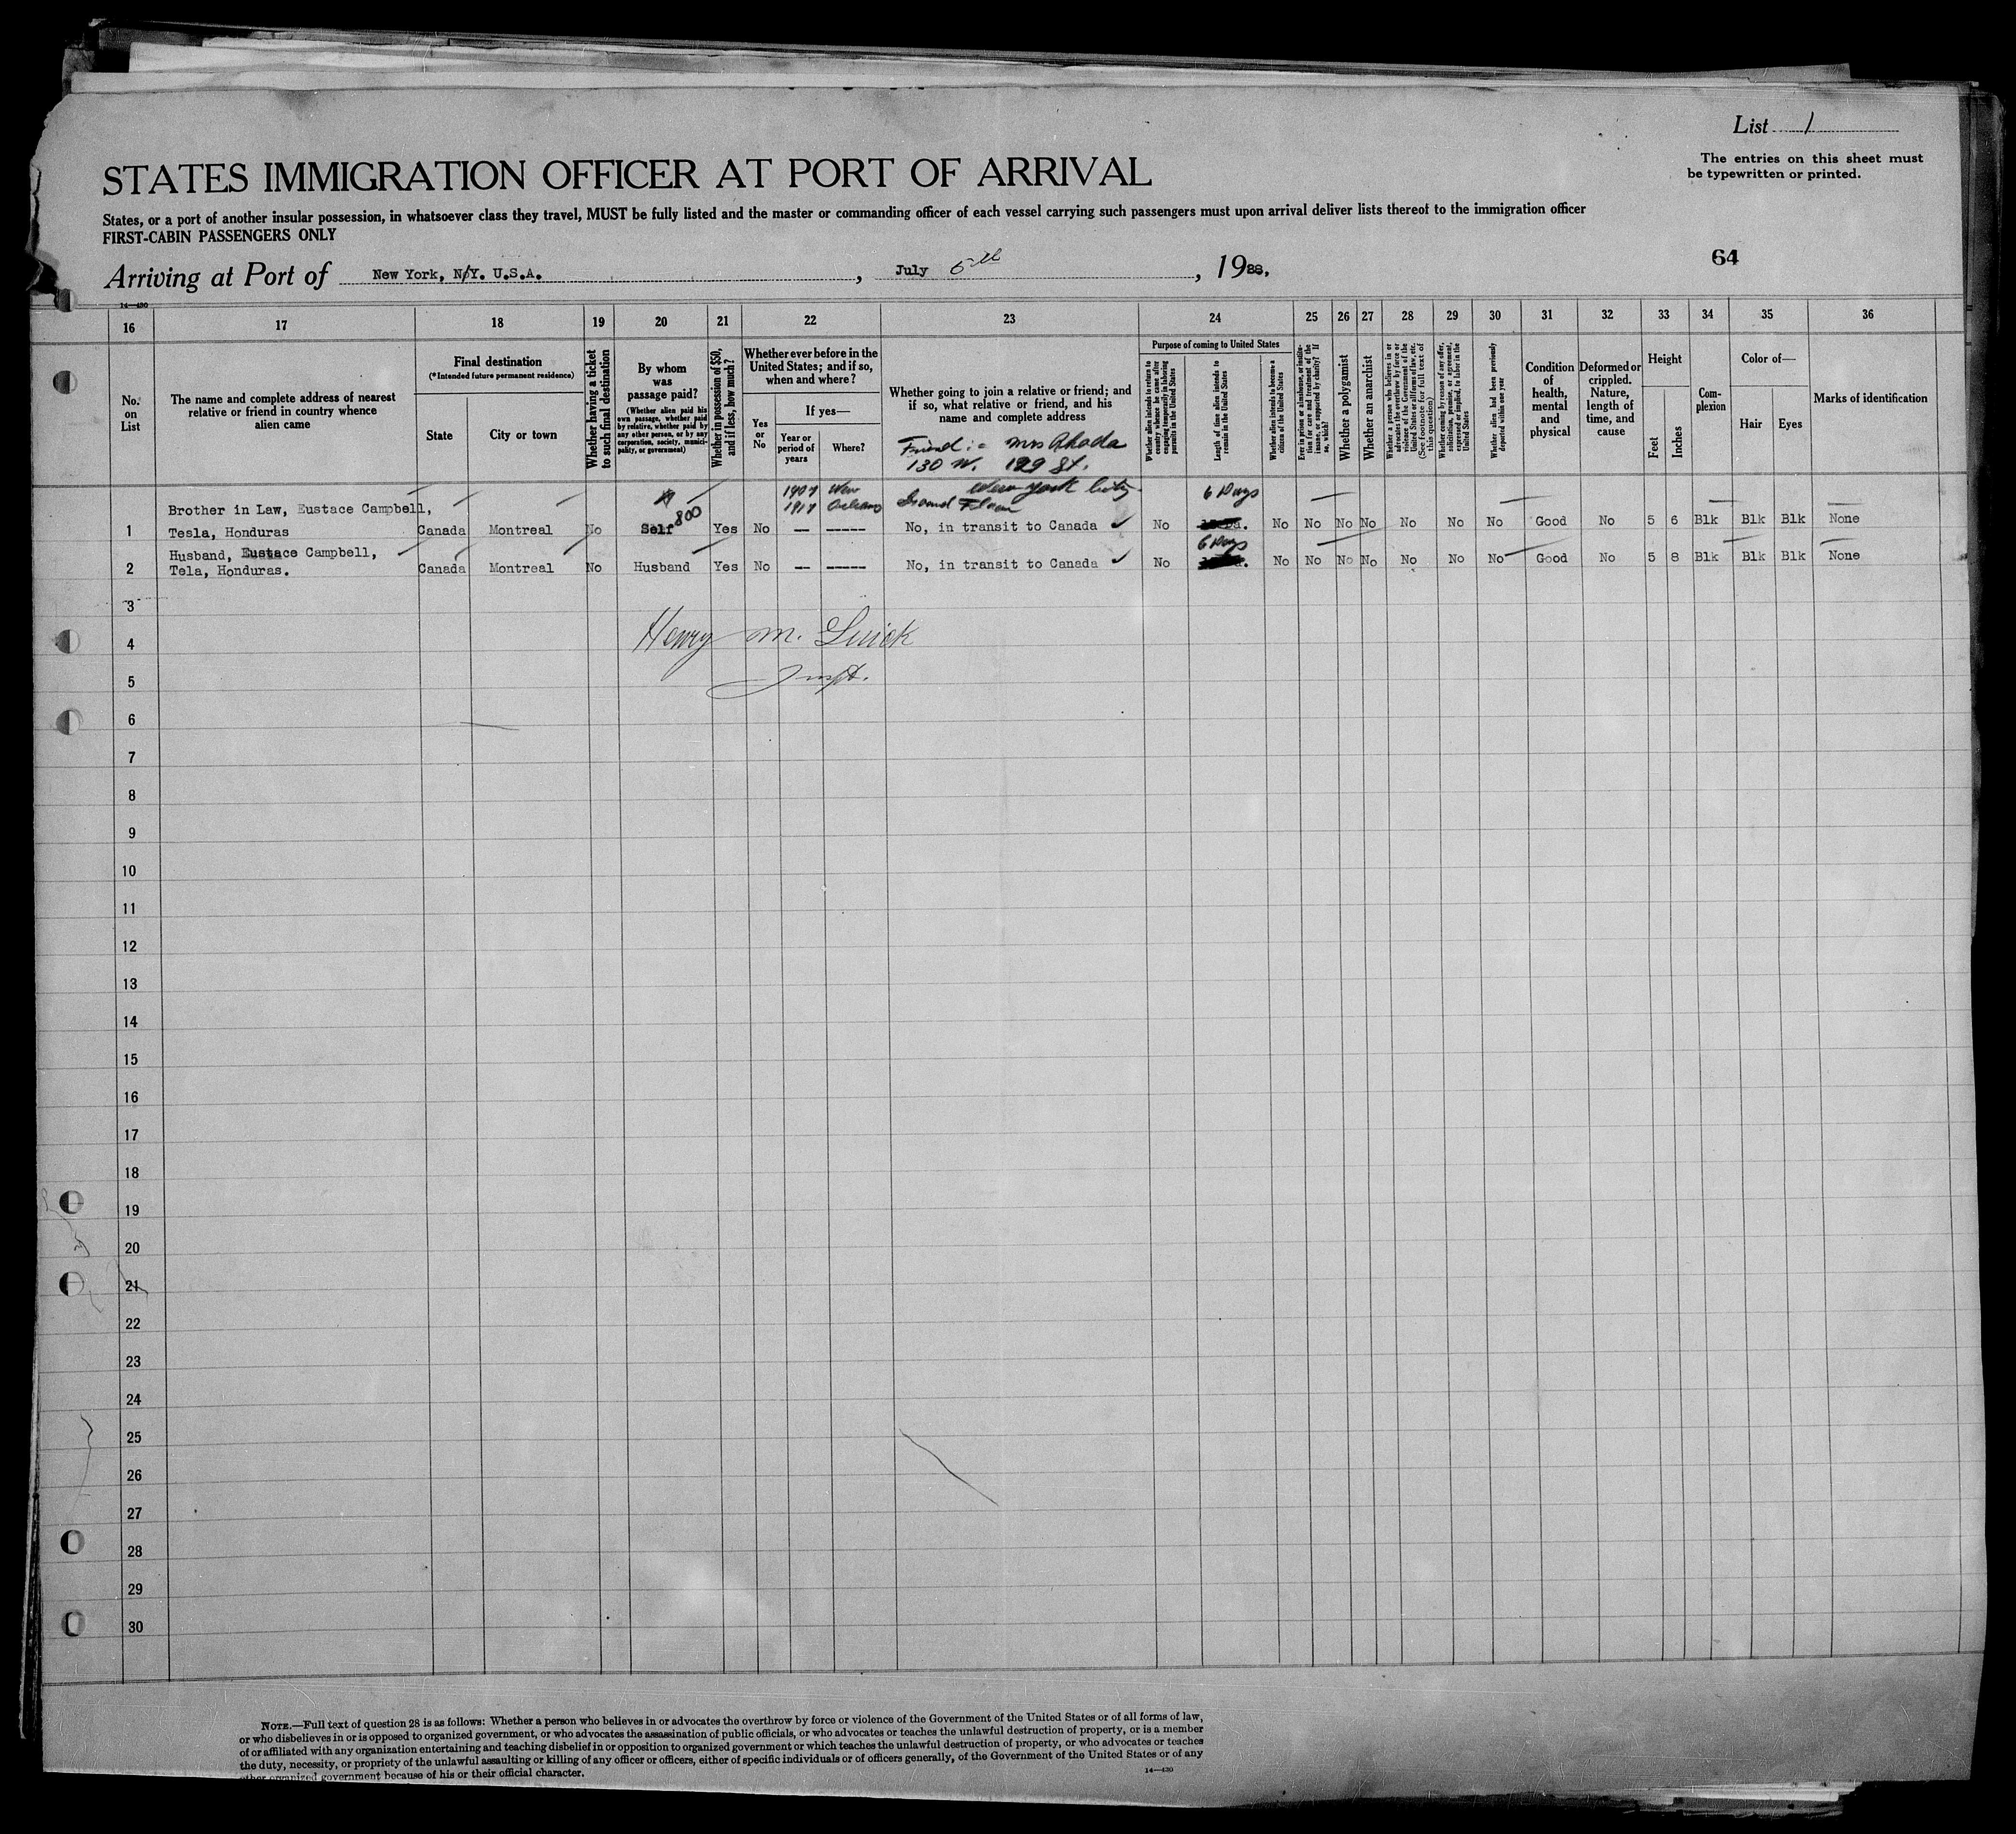 List 1
The entries on this sheet must
be typewritten or printed.
STATES IMMIGRATION OFFICER AT PORT OF ARRIVAL
States, or a port of another insular possession, in whatsoever class they travel, MUST be fully listed and the master or commanding officer of each vessel carrying such passengers must upon arrival deliver lists thereof to the immigration officer
FIRST-CABIN PASSENGERS ONLY
64
Arriving at Port of New York, N.Y. U.S.A., July 5th, 19
14—430
16 17 18 19 20 21 22 23 24 25 26 27 28 29 30 31 32 33 34 35 36
No. on List
The name and complete address of nearest
relative or friend in country whence
alien came
Final destination
(*Intended future permanent residence)
State
City or town
Whether having a ticket
to such final destination
By whom
was
passage paid?
(Whether alien paid his
own passage, whether paid
by relative, whether paid by
any other person, or by any
corporation, society, munici-
pality, or government)
Whether in possession of $50,
and if less, how much?
Whether ever before in the
United States; and if so,
when and where?
Yes
or
No
If yes—
Year or
period of
years
Where?
Whether going to join a relative or friend; and
if so, what relative or friend, and his
name and complete address
Friend:= Mrs Rhoda
130 W. 129 St.
New York City
Ground Floor
Purpose of coming to United States
Whether alien intends to return to
country whence he came after
engaging temporarily in laboring
pursuits in the United States
Length of time alien intends to
remain in the United States
Whether alien intends to become a
citizen of the United States
Ever in prison or almshouse, or institu-
tion for care and treatment of the
insane, or supported by charity? If
so, which?
Whether a polygamist
Whether an anarchist
Whether a person who believes in or
advocates the overthrow by force or
violence of the Government of the
United States or all forms of law, etc.
(See footnote for full text of
this question)
Whether coming by reason of any offer,
solicitation, promise, or agreement,
expressed or implied, to labor in the
United States
Whether alien had been previously
deported within one year
Condition
of
health,
mental
and
physical
Deformed or
crippled.
Nature,
length of
time, and
cause
Height
Feet
Inches
Com-
plexion
Color of—
Hair
Eyes
Marks of identification
1907 New
1917 Orleans
800
6 Days
Brother in Law, Eustace Campbell,
1 Tesla, Honduras Canada Montreal No Self Yes No -- ----- No, in transit to Canada ✓ No No No No No No No No Good No 5 6 Blk Blk Blk None
6 Days
Husband, Eustace Campbell,
2 Tela, Honduras. Canada Montreal No Husband Yes No -- ----- No, in transit to Canada ✓ No No No No No No No No Good No 5 8 Blk Blk Blk None
3
4 Henry M. Quick
5 Inspt.
6
7
8
9
10
11
12
13
14
15
16
17
18
19
20
21
22
23
24
25
26
27
28
29
30
NOTE.—Full text of question 28 is as follows: Whether a person who believes in or advocates the overthrow by force or violence of the Government of the United States or of all forms of law,
or who disbelieves in or is opposed to organized government, or who advocates the assassination of public officials, or who advocates or teaches the unlawful destruction of property, or is a member
of or affiliated with any organization entertaining and teaching disbelief in or opposition to organized government or which teaches the unlawful destruction of property, or who advocates or teaches
the duty, necessity, or propriety of the unlawful assaulting or killing of any officer or officers, either of specific individuals or of officers generally, of the Government of the United States or of any
other organized government because of his or their official character.
14—430